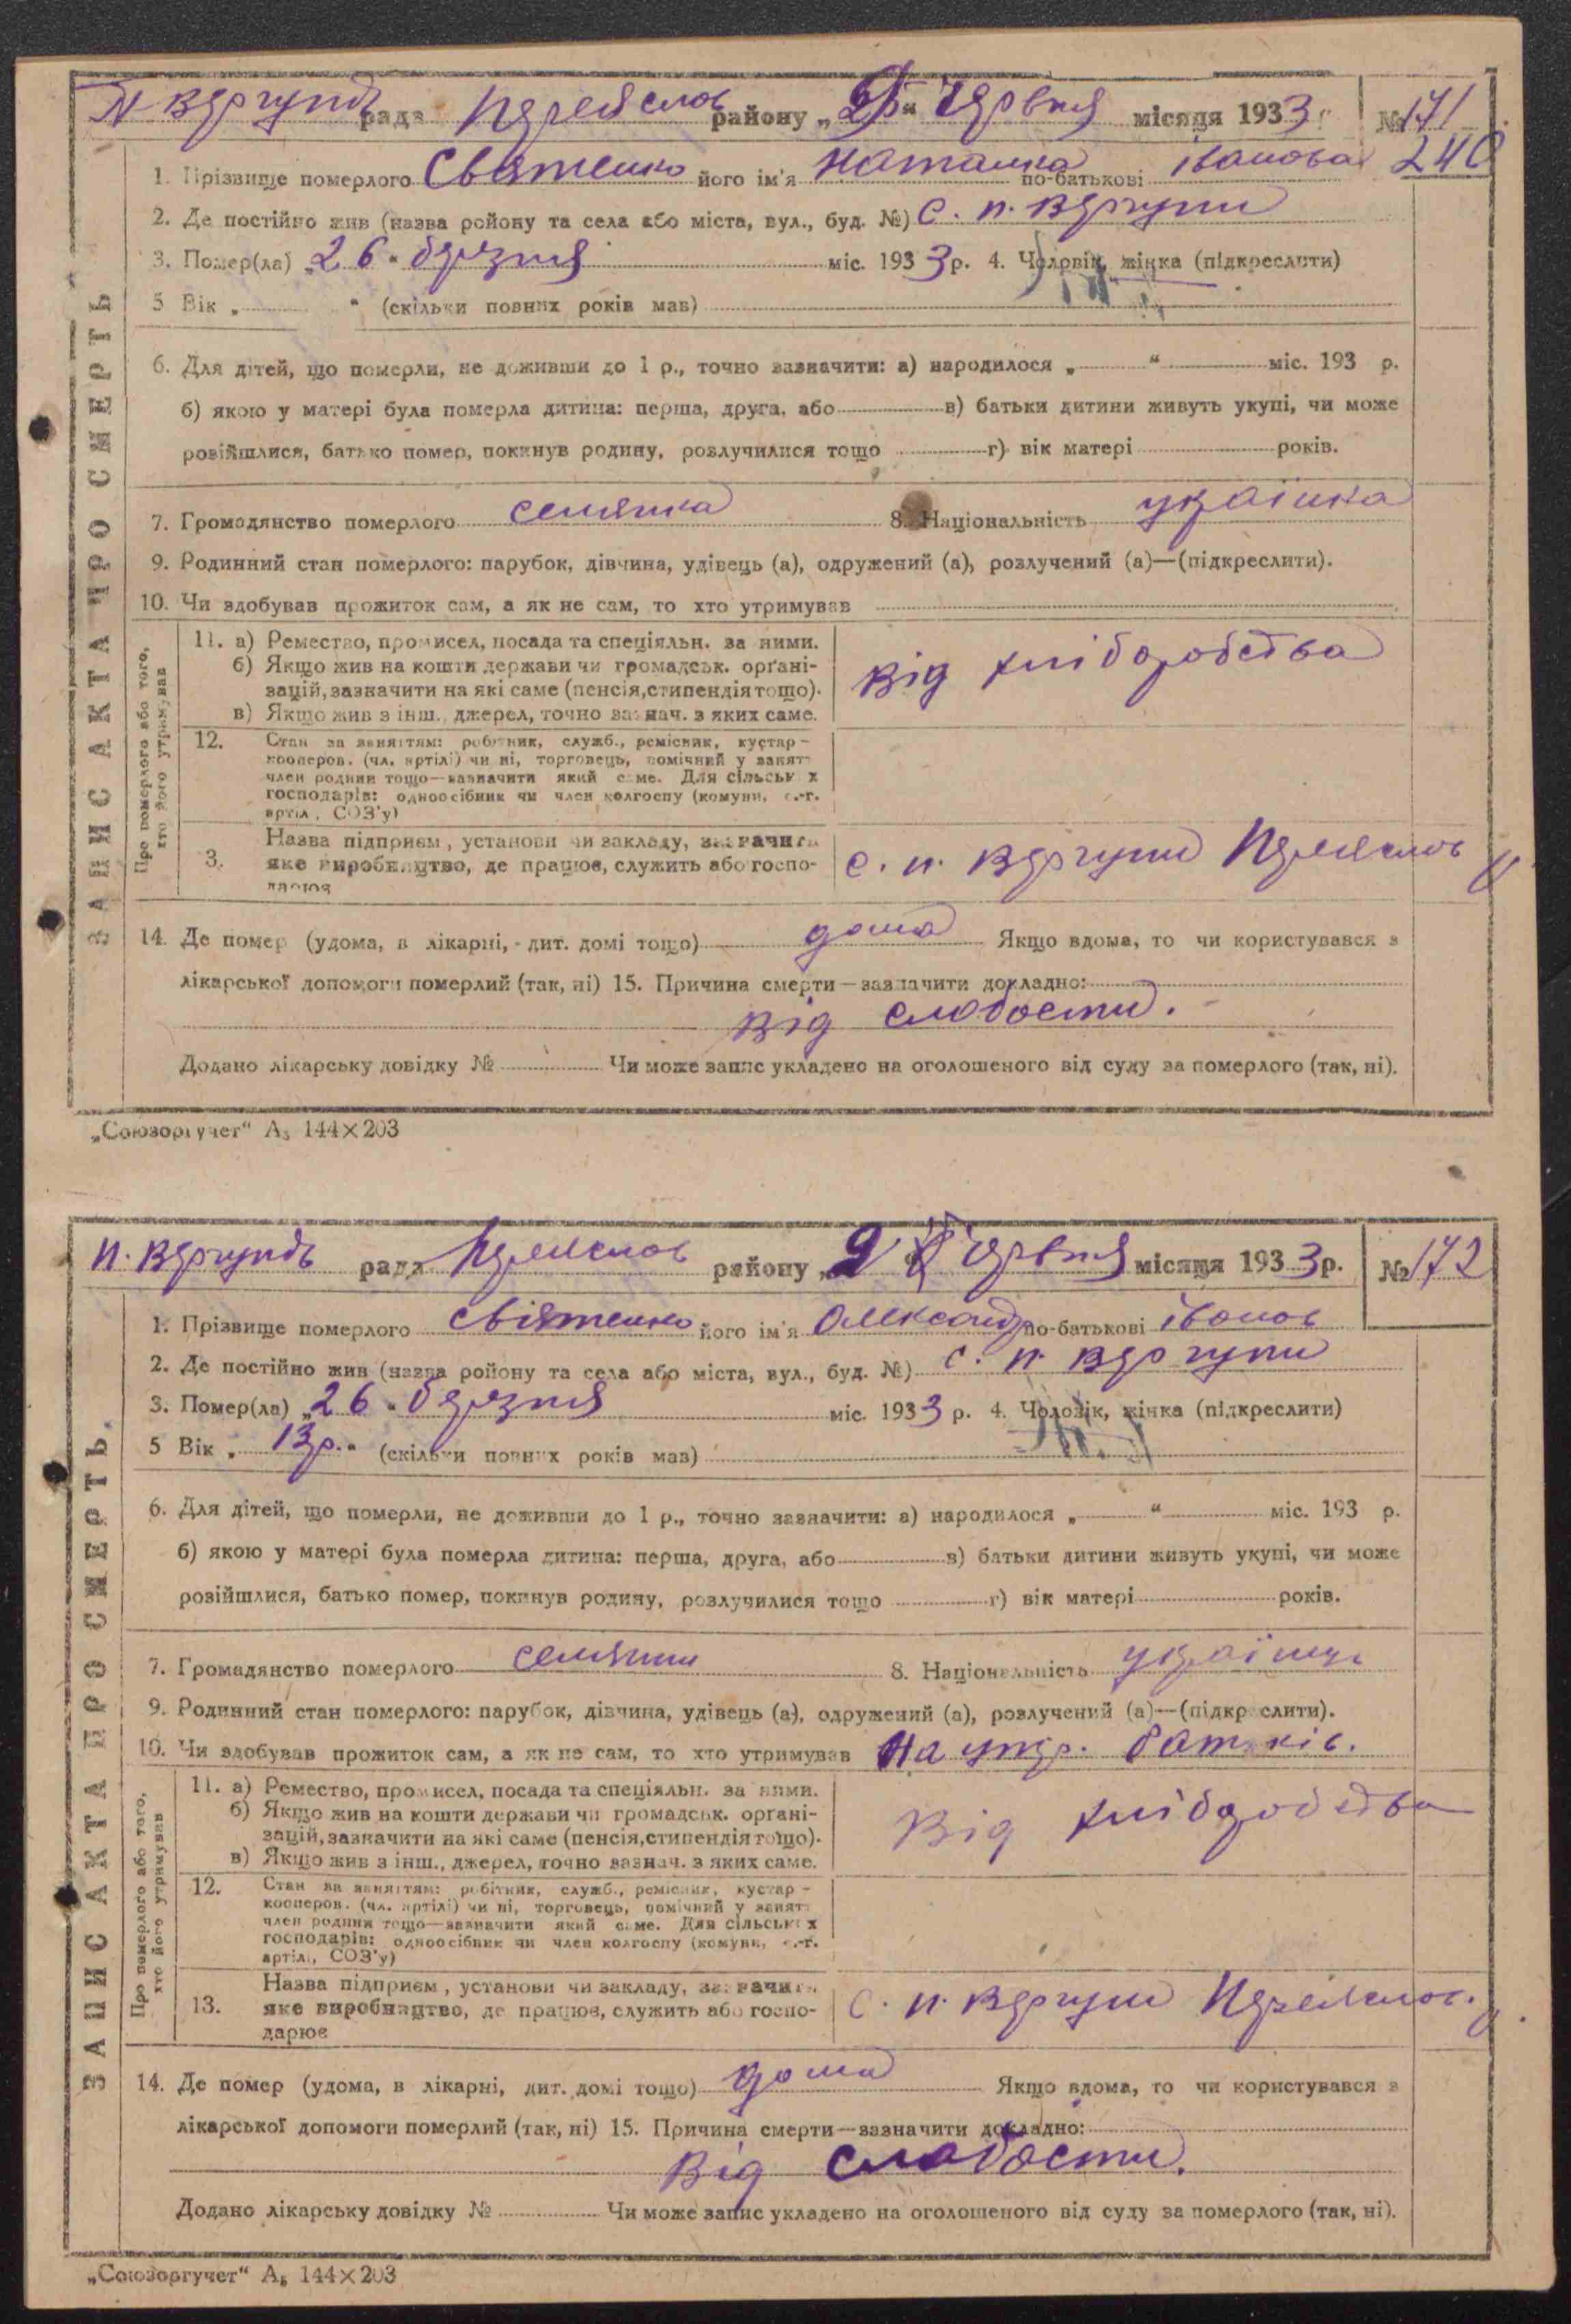 П Вергунів рада Переяслов району „ “ Червня місяця 1933 р. №171
1. Прізвище померлого Святенко його ім'я Наталка по-батькові івановна 240
2. Де постійно жив (назва ройону та села або міста, вул., буд. №) С. п. Вергуни
3. Помер(ла) „26“ березня міс. 1933 р. 4. Чоловік, жінка (підкреслити)
5 Вік „ “ (скільки повних років мав)
6. Для дітей, що померли, не доживши до 1 р., точно зазначити: а) народилося „ “ міс. 193 р.
б) якою у матері була померла дитина: перша, друга, або в) батьки дитини живуть укупі, чи може
розійшлися, батько помер, покинув родину, розлучилися тощо г) вік матері років.
7. Громадянство померлого селянка 8. Національність українка
9. Родинний стан померлого: парубок, дівчина, удівець (а), одружений (а), розлучений (а)—(підкреслити).
10. Чи здобував прожиток сам, а як не сам, то хто утримував
11. а) Ремество, промисел, посада та спеціяльн. за ними.
б) Якщо жив на кошти держави чи громадськ. органі-
зацій, зазначити на які саме (пенсія, стипендія тощо).
в) Якщо жив з інш., джерел, точно зазнач. з яких саме.
Від хліборобства
12. Стан за заняттям: робітник, служб., ремісник, кустар -
кооперов. (чл. артілі) чи ні, торговець, помічний у занят-
член родини тощо—зазначити який саме. Для сільських
господарів: одноосібник чи член колгоспу (комуни, с.-г.
артіл., СОЗ'у)
3. Назва підприєм, установи чи закладу, зазначити
яке виробництво, де працює, служить або госпо-
дарює
с. п. Вергуни Переяслов р
14. Де помер (удома, в лікарні, дит. домі тощо) дома Якщо вдома, то чи користувався з
лікарської допомоги померлий (так, ні) 15. Причина смерти—зазначити докладно:
Від слабости.
Додано лікарську довідку № Чи може запис укладено на оголошеного від суду за померлого (так, ні).
ЗАПИС АКТА ПРО СМЕРТЬ
Про померлого або того,
хто його утримував
„Союзоргучет“ А₅ 144×203
п. Вергунів рада Переяслов району „9“ Червня місяця 1933 р. №172
1. Прізвище померлого Святенко його ім'я Олександр по-батькові іванов
2. Де постійно жив (назва ройону та села або міста, вул., буд. №) с. п. Вергуни
3. Помер(ла) „26“ березня міс. 1933 р. 4. Чоловік, жінка (підкреслити)
5 Вік „13р.“ (скільки повних років мав)
6. Для дітей, що померли, не доживши до 1 р., точно зазначити: а) народилося „ “ міс. 193 р.
б) якою у матері була померла дитина: перша, друга, або в) батьки дитини живуть укупі, чи може
розійшлися, батько помер, покинув родину, розлучилися тощо г) вік матері років.
7. Громадянство померлого селянин 8. Національність українц
9. Родинний стан померлого: парубок, дівчина, удівець (а), одружений (а), розлучений (а)—(підкреслити).
10. Чи здобував прожиток сам, а як не сам, то хто утримував На утр. батьків.
11. а) Ремество, промисел, посада та спеціяльн. за ними.
б) Якщо жив на кошти держави чи громадськ. органі-
зацій, зазначити на які саме (пенсія, стипендія тощо).
в) Якщо жив з інш., джерел, точно зазнач. з яких саме.
Від хліборобства
12. Стан за заняттям: робітник, служб., ремісник, кустар -
кооперов. (чл. артілі) чи ні, торговець, помічний у занят-
член родини тощо—зазначити який саме. Для сільських
господарів: одноосібник чи член колгоспу (комуни, с.-г.
артіл., СОЗ'у)
13. Назва підприєм, установи чи закладу, зазначити
яке виробництво, де працює, служить або госпо-
дарює
с. п. Вергуни Переяслов. р.
14. Де помер (удома, в лікарні, дит. домі тощо) дома Якщо вдома, то чи користувався з
лікарської допомоги померлий (так, ні) 15. Причина смерти—зазначити докладно:
Від слабости.
Додано лікарську довідку № Чи може запис укладено на оголошеного від суду за померлого (так, ні).
ЗАПИС АКТА ПРО СМЕРТЬ.
Про померлого або того,
хто його утримував
„Союзоргучет“ А₅ 144×203